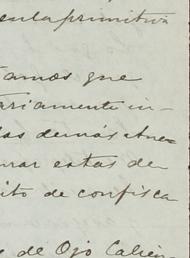 en la primitiva
tamos que
tariamente in-
las demás Ane-
rar estas de
ito de confisca
de Ojo Calien-